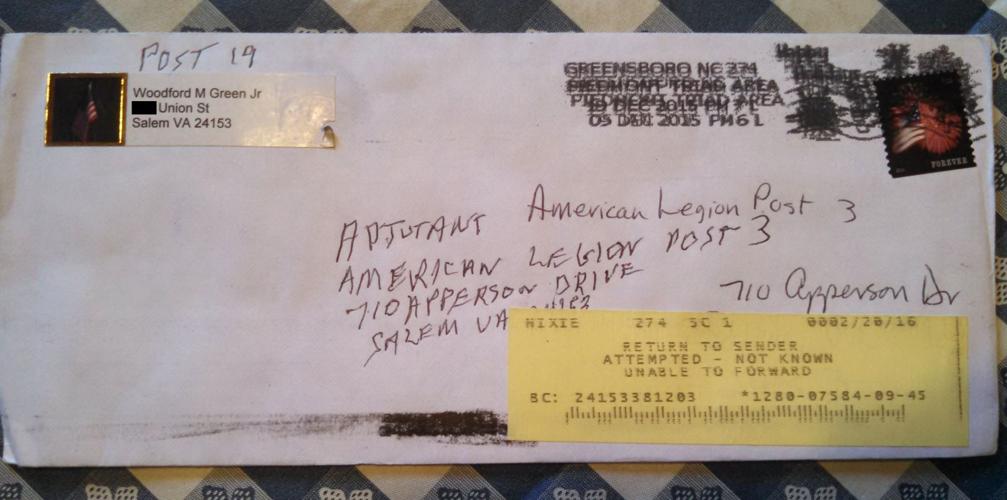 POST 19
Woodford M Green Jr
Union St
Salem VA 24153
GREENSBORO NC 274
PIEDMONT TRIAD AREA
DEC 2015 PM 6 L
FOREVER
ADJUTANT
AMERICAN LEGION POST 3
710 APPERSON DRIVE
SALEM VA
American Legion Post 3
710 Apperson Dr
NIXIE 274 5C 1 0002/20/16
RETURN TO SENDER
ATTEMPTED - NOT KNOWN
UNABLE TO FORWARD
BC: 24153381203 *1280-07584-09-45